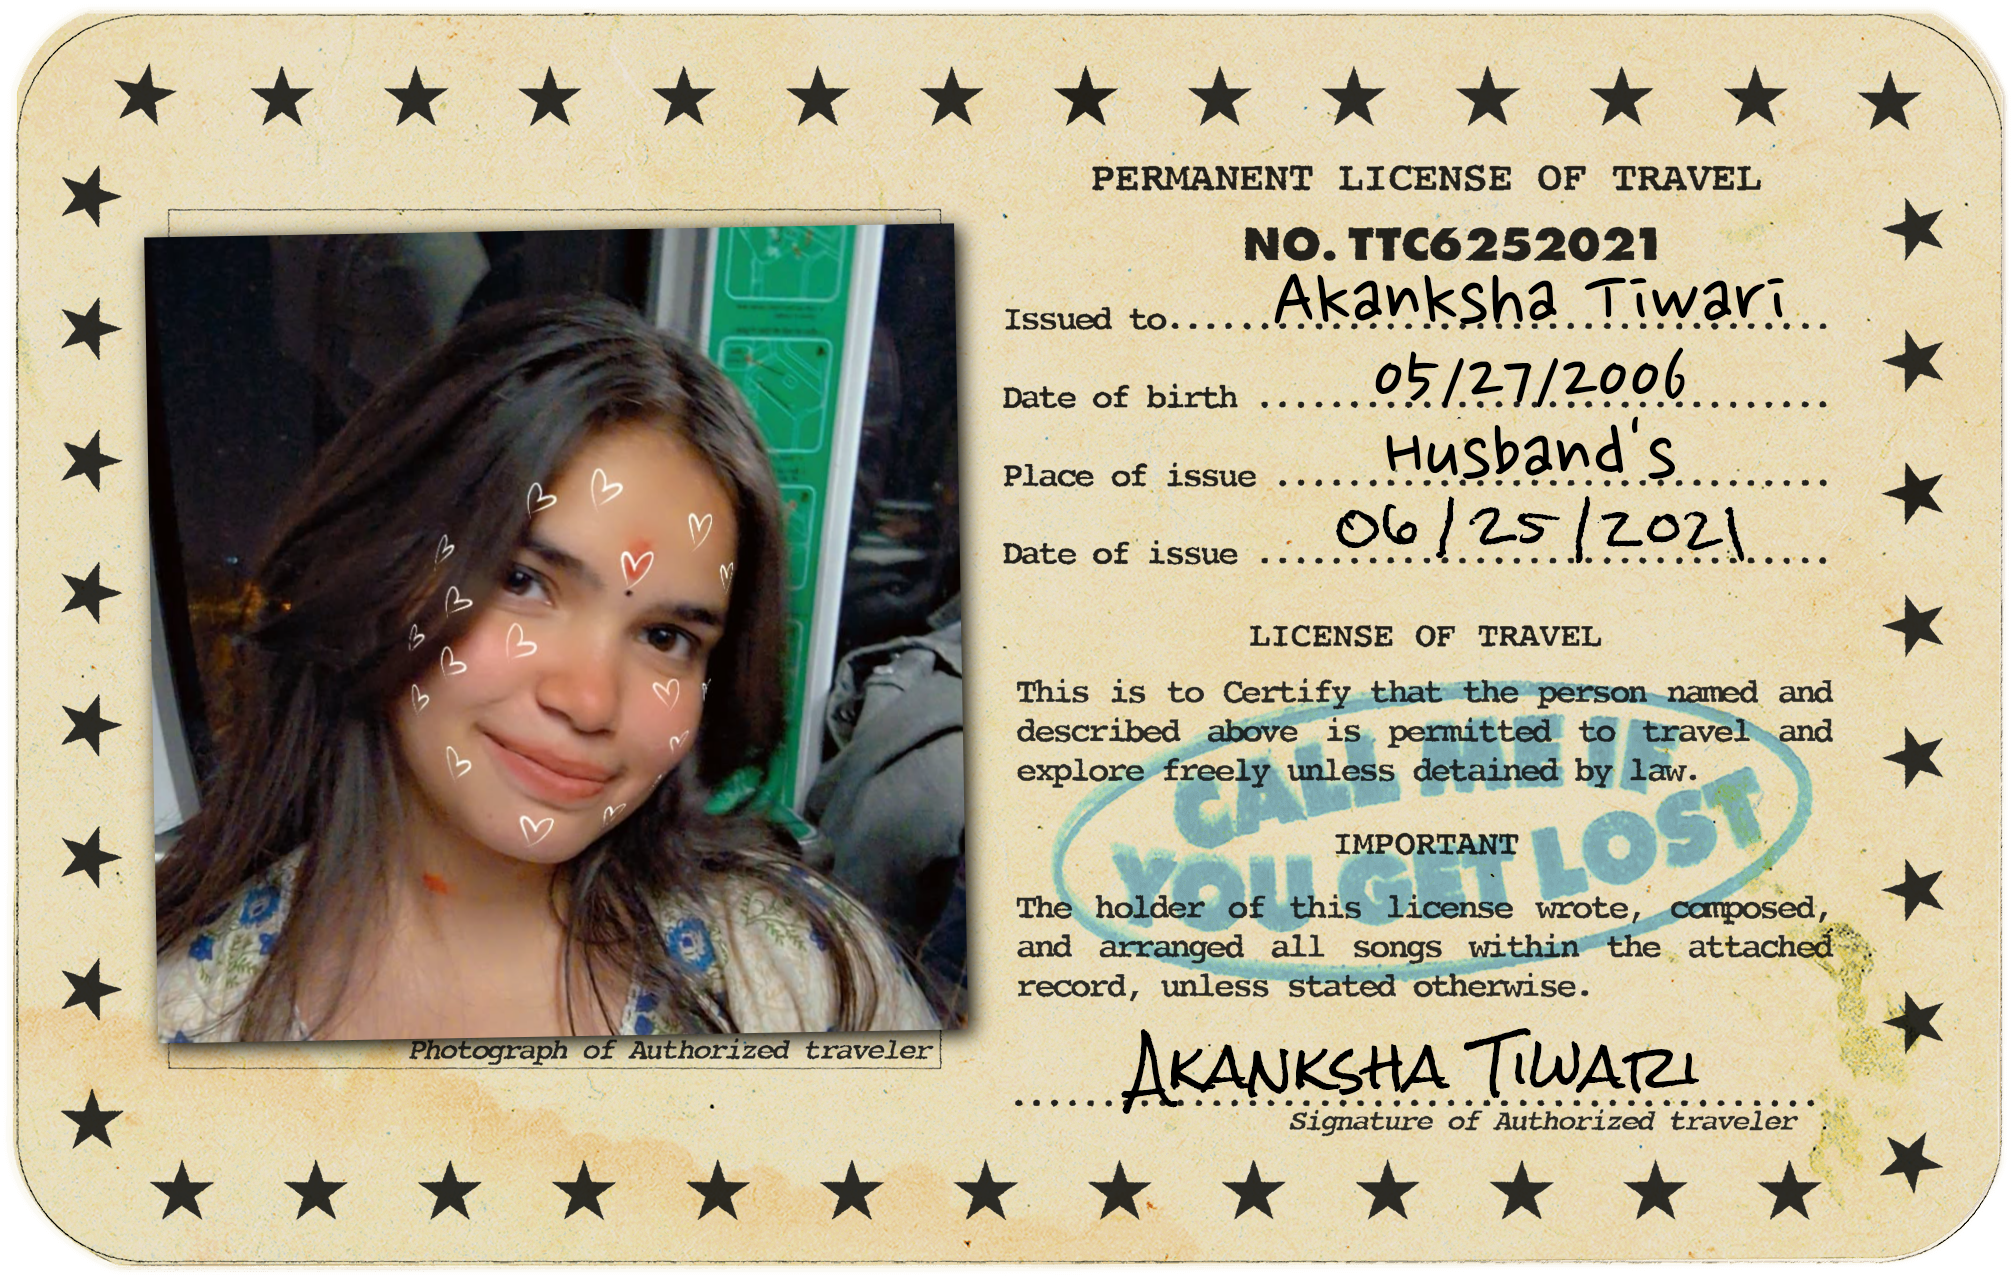 PERMANENT LICENSE OF TRAVEL
NO. TTC6252021
Issued to.......Akanksha Tiwari
Date of birth .......05/27/2006
Place of issue .......Husband's
Date of issue .......06/25/2021
LICENSE OF TRAVEL
This is to Certify that the person named and
described above is permitted to travel and
explore freely unless detained by law.
CALL ME IF
YOU GET LOST
IMPORTANT
The holder of this license wrote, composed,
and arranged all songs within the attached
record, unless stated otherwise.
AKANKSHA TIWARI
Signature of Authorized traveler
Photograph of Authorized traveler